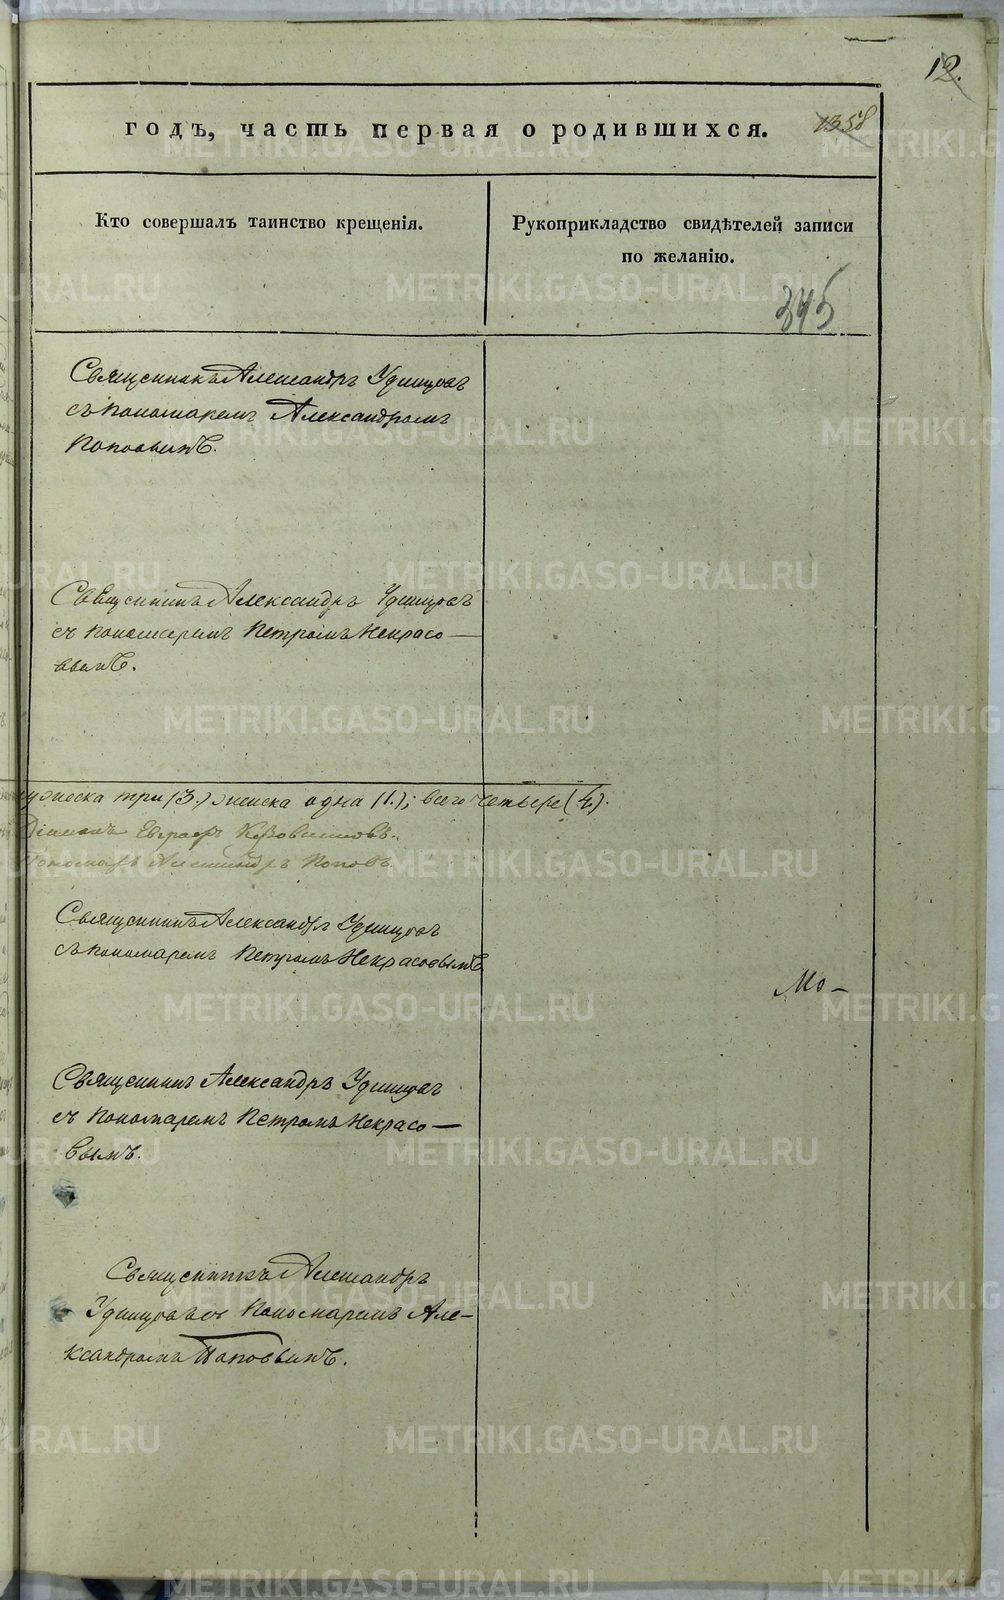 12.
годъ, часть первая о родившихся.
1358
Кто совершалъ таинство крещенія.
Рукоприкладство свидѣтелей записи
по желанію.
345
Священникъ Александръ Удинцовъ
съ пономаремъ Александромъ
Поповымъ.
Священникъ Александръ Удинцовъ
съ пономаремъ Петромъ Некрасо—
вымъ.
мужеска три (3.) женска одна (1.); всего четыре (4.).
Діаконъ Евграфъ
Пономарь Александръ Поповъ
Священникъ Александръ Удинцовъ
съ пономаремъ Петромъ Некрасовымъ
Мо-
Священникъ Александръ Удинцовъ
съ пономаремъ Петромъ Некрасо—
вымъ.
Священникъ Александръ
Удинцовъ съ пономаремъ Але-
ксандромъ Поповымъ.
METRIKI.GASO-URAL.RU